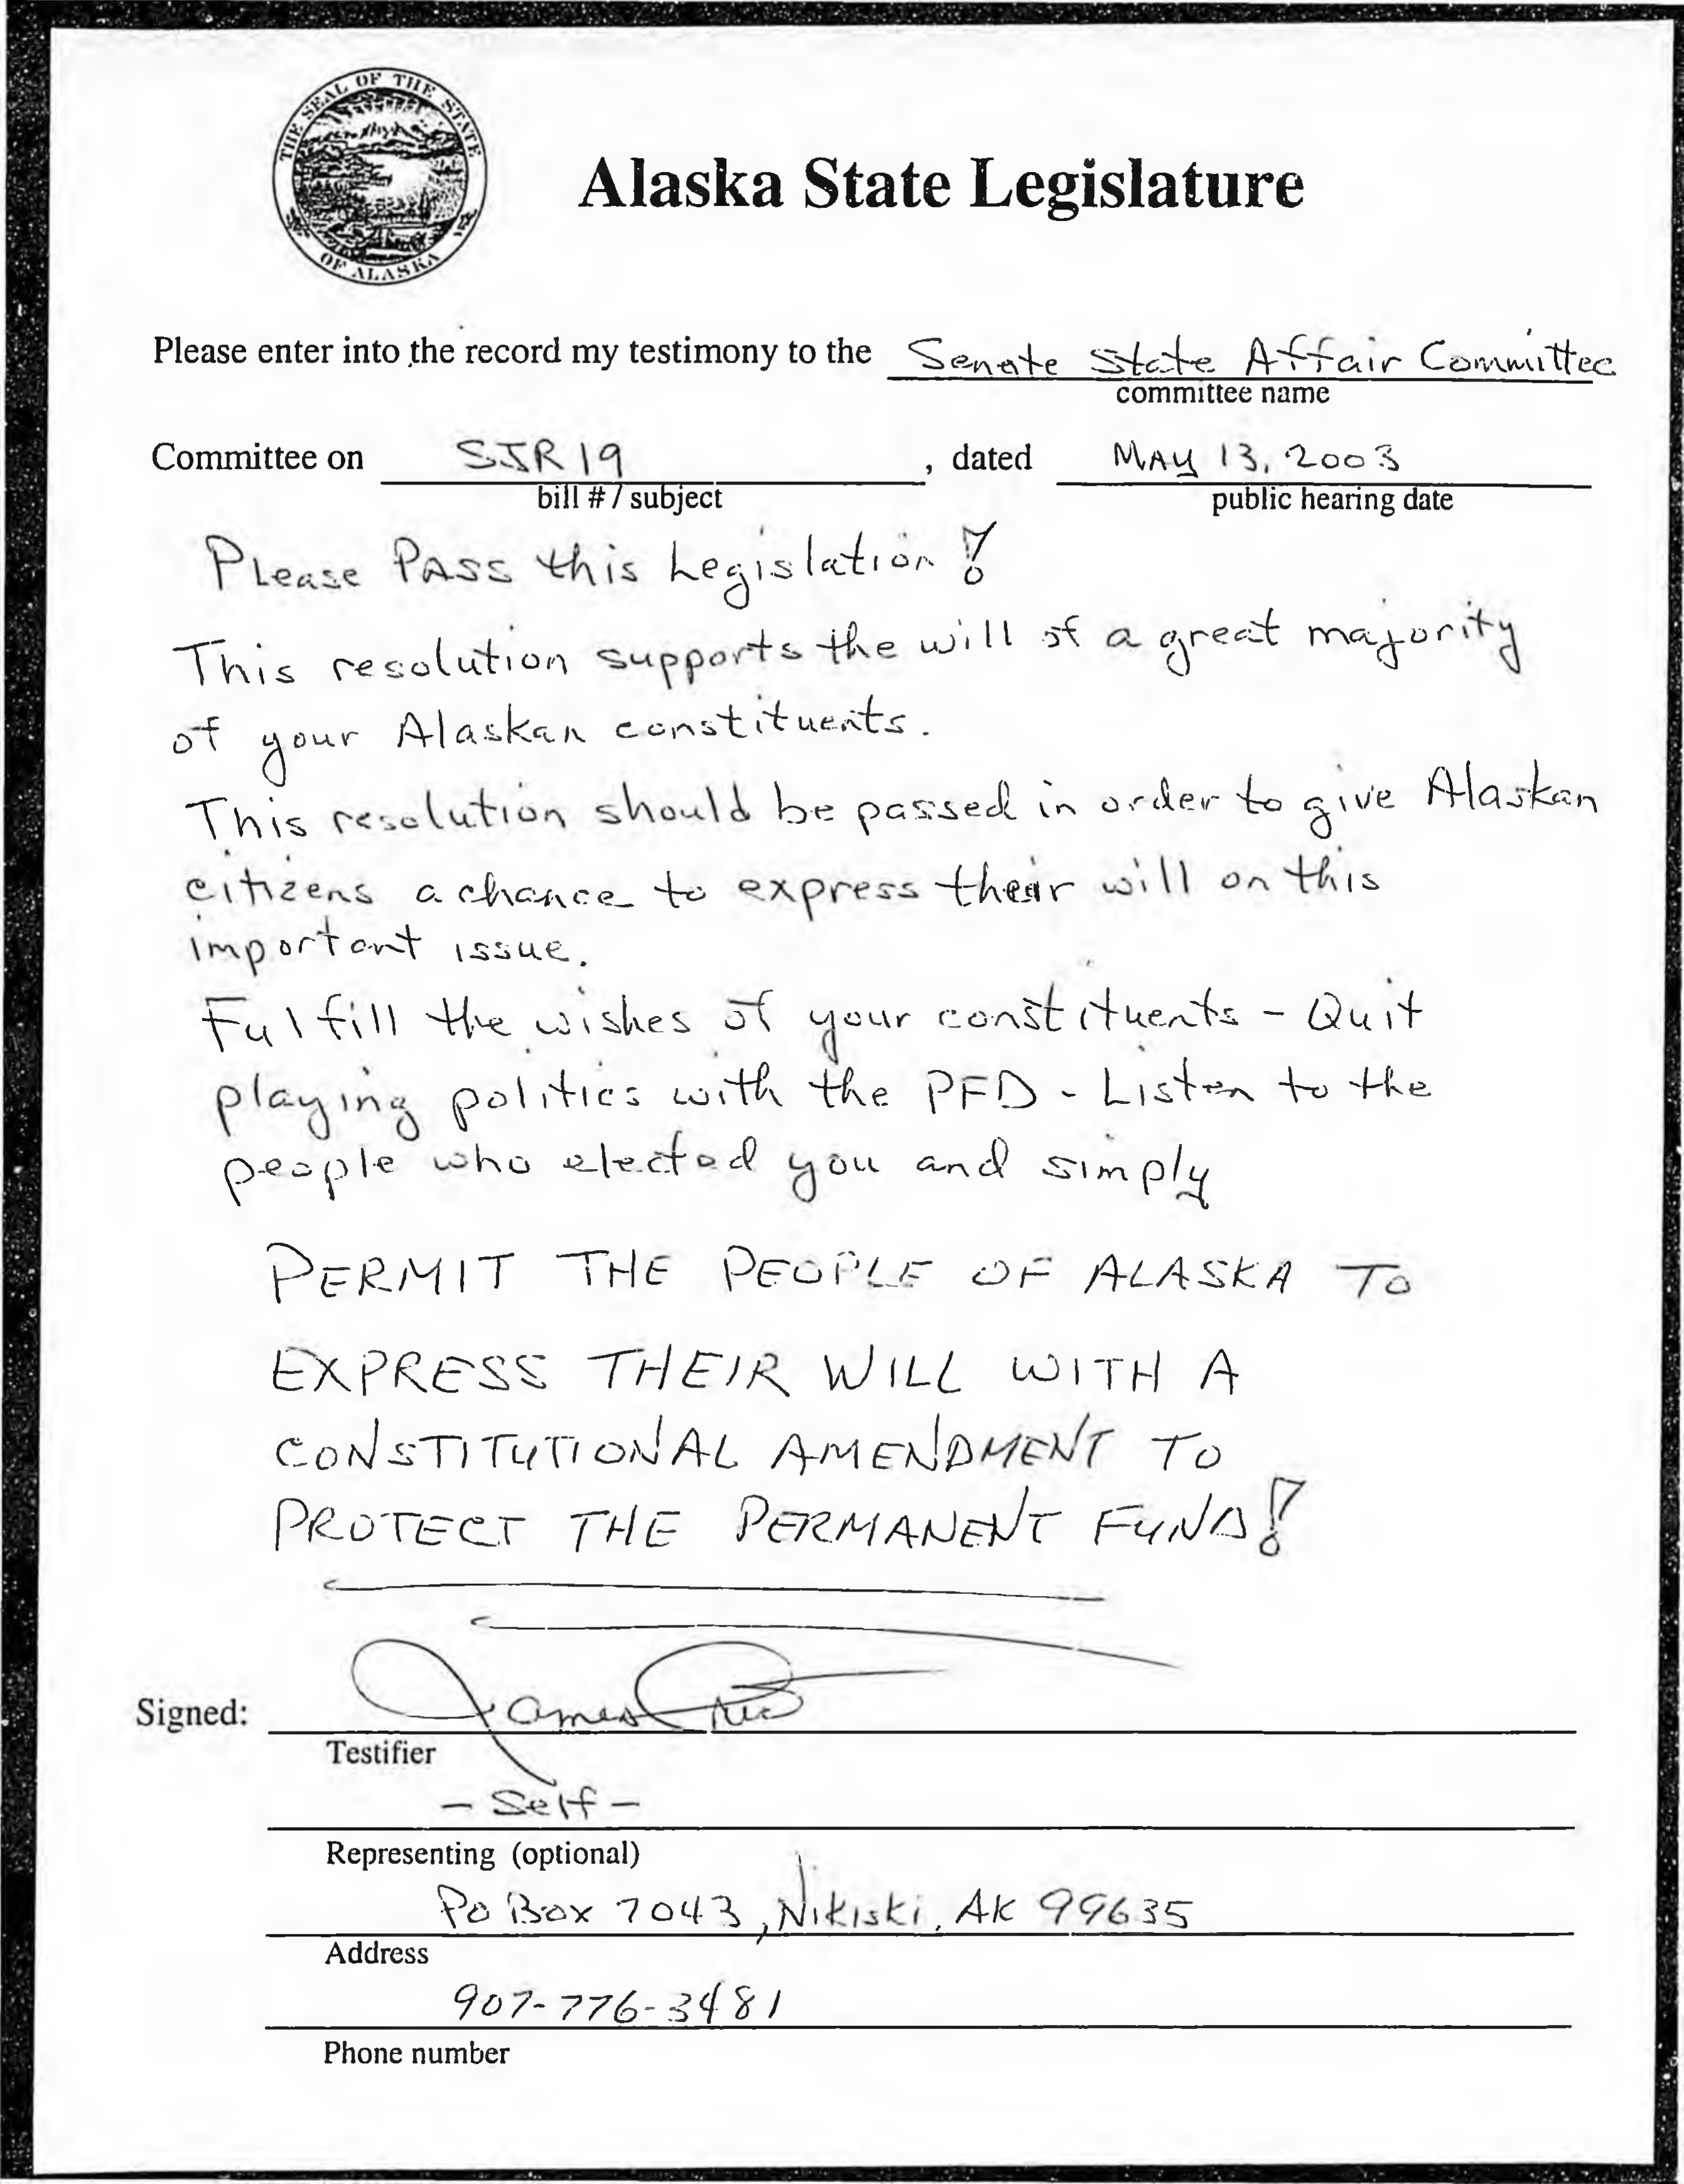 THE SEAL OF THE STATE
OF ALASKA
Alaska State Legislature
Please enter into the record my testimony to the Senate State Affair Committee
committee name
Committee on SJR 19, dated MAY 13, 2003
bill # / subject public hearing date
Please PASS this Legislation!
This resolution supports the will of a great majority
of your Alaskan constituents.
This resolution should be passed in order to give Alaskan
citizens a chance to express their will on this
important issue.
Fulfill the wishes of your constituents - Quit
playing politics with the PFD - Listen to the
people who elected you and simply
PERMIT THE PEOPLE OF ALASKA TO
EXPRESS THEIR WILL WITH A
CONSTITUTIONAL AMENDMENT TO
PROTECT THE PERMANENT FUND!
Signed: James
Testifier
- Self -
Representing (optional)
PO Box 7043, Nikiski, AK 99635
Address
907-776-3481
Phone number